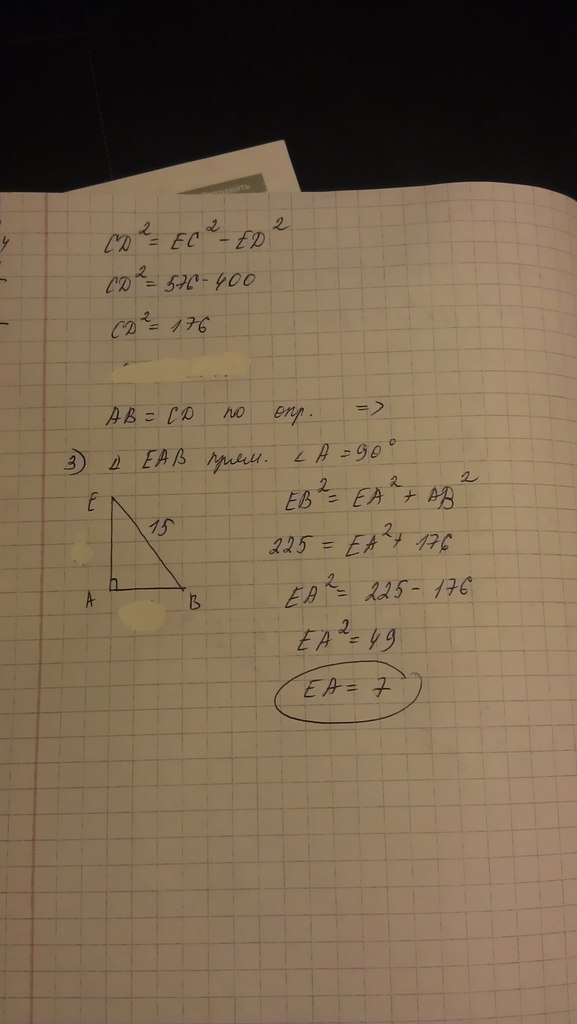 CD² = EC² - ED²
CD² = 576 - 400
CD² = 176
AB = CD по опр. =>
3) Δ EAB прям. ∠A = 90°
E
15
A
B
EB² = EA² + AB²
225 = EA² + 176
EA² = 225 - 176
EA² = 49
EA = 7